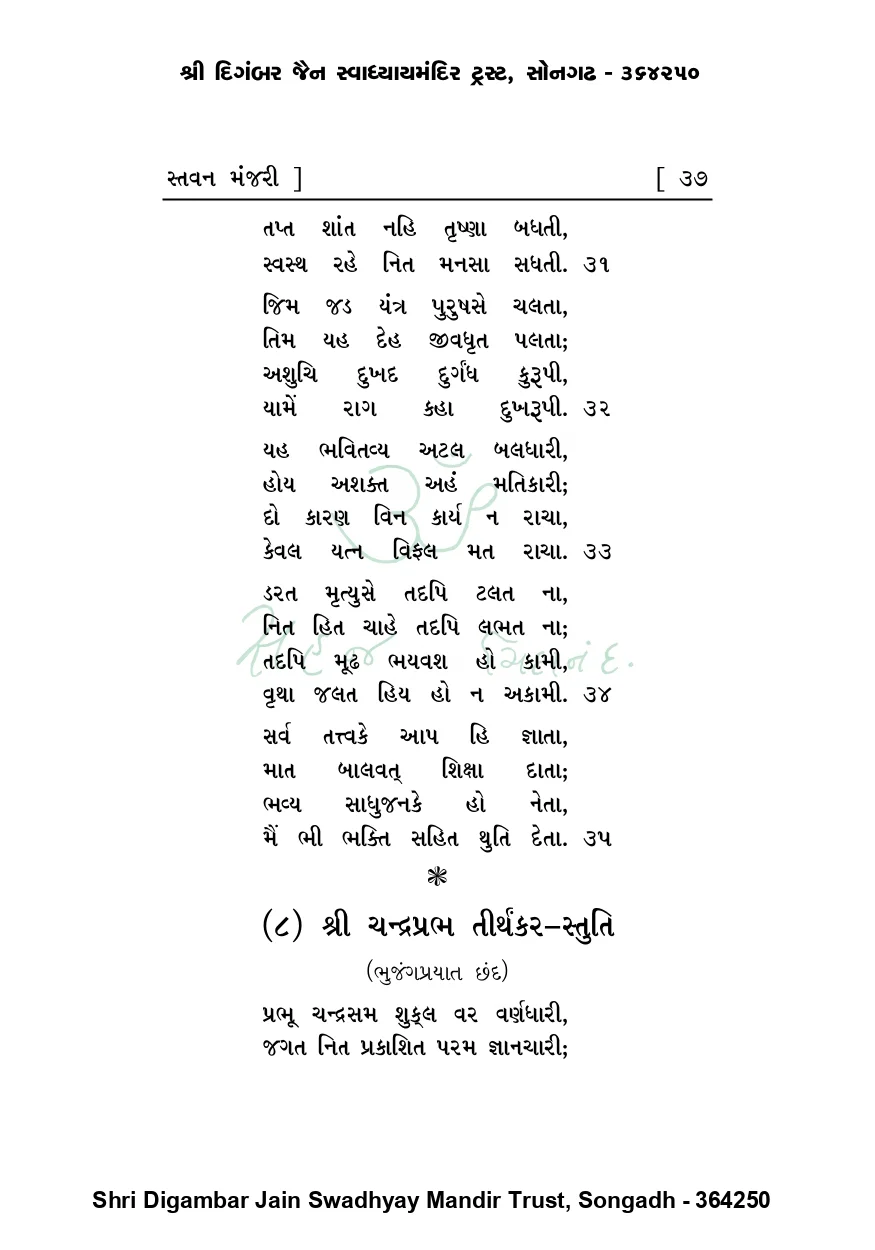 શ્રી દિગંબર જૈન સ્વાધ્યાયમંદિર ટ્રસ્ટ, સોનગઢ - ૩૬૪૨૫૦
સ્તવન મંજરી ] [ ૩૭
તપ્ત શાંત નહિ તૃષ્ણા બધતી,
સ્વસ્થ રહે નિત મનસા સધતી. ૩૧
જિમ જડ યંત્ર પુરુષસે ચલતા,
તિમ યહ દેહ જીવધૃત પલતા;
અશુચિ દુખદ દુર્ગંધ કુરૂપી,
યામેં રાગ કહા દુખરૂપી. ૩૨
યહ ભવિતવ્ય અટલ બલધારી,
હોય અશક્ત અહં મતિકારી;
દો કારણ વિન કાર્ય ન રાચા,
કેવલ યત્ન વિફલ મત રાચા. ૩૩
ડરત મૃત્યુસે તદપિ ટલત ના,
નિત હિત ચાહે તદપિ લભત ના;
તદપિ મૂઢ ભયવશ હો કામી,
વૃથા જલત હિય હો ન અકામી. ૩૪
સર્વ તત્ત્વકે આપ હિ જ્ઞાતા,
માત બાલવત્ શિક્ષા દાતા;
ભવ્ય સાધુજનકે હો નેતા,
મૈં ભી ભક્તિ સહિત થુતિ દેતા. ૩૫
❃
(૮) શ્રી ચન્દ્રપ્રભ તીર્થંકર–સ્તુતિ
(ભુજંગપ્રયાત છંદ)
પ્રભૂ ચન્દ્રસમ શુક્લ વર વર્ણધારી,
જગત નિત પ્રકાશિત પરમ જ્ઞાનચારી;
ૐ
સહજ ચિદાનંદ.
Shri Digambar Jain Swadhyay Mandir Trust, Songadh - 364250